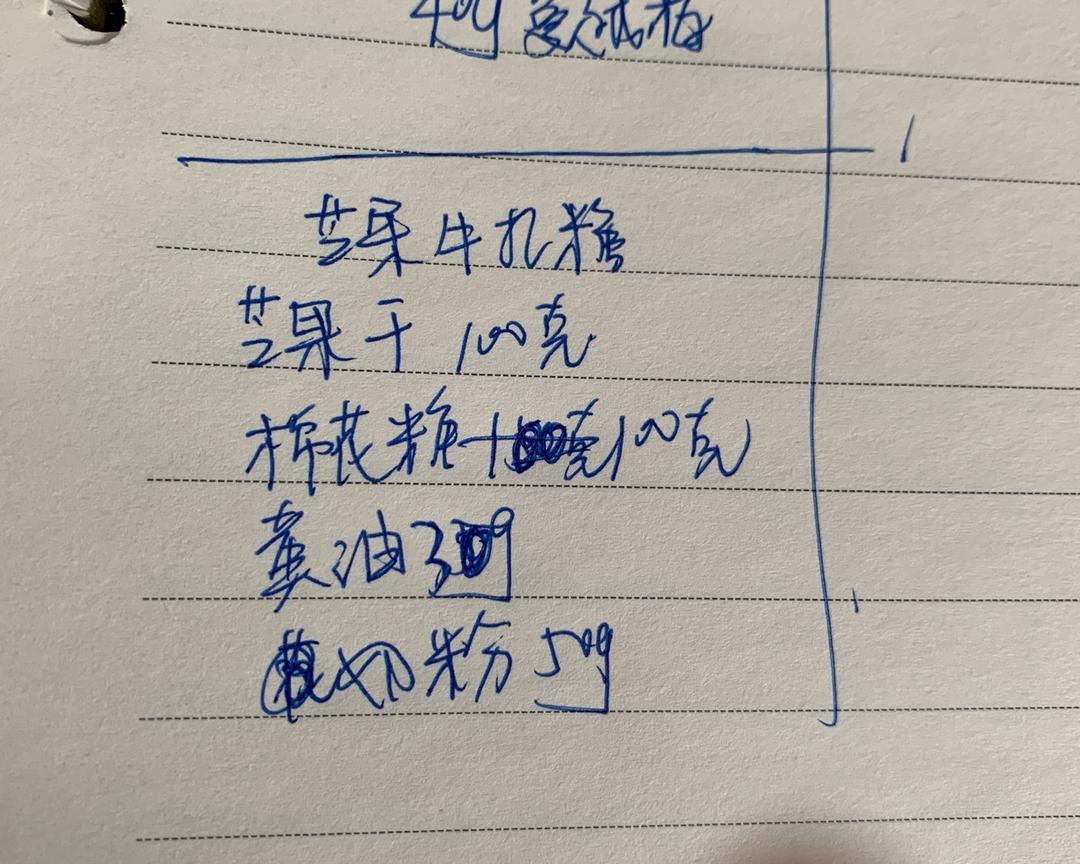 40g 蔓越梅
芒果牛扎糖
芒果干 100克
棉花糖 100克
黄油 30g
奶粉 50g